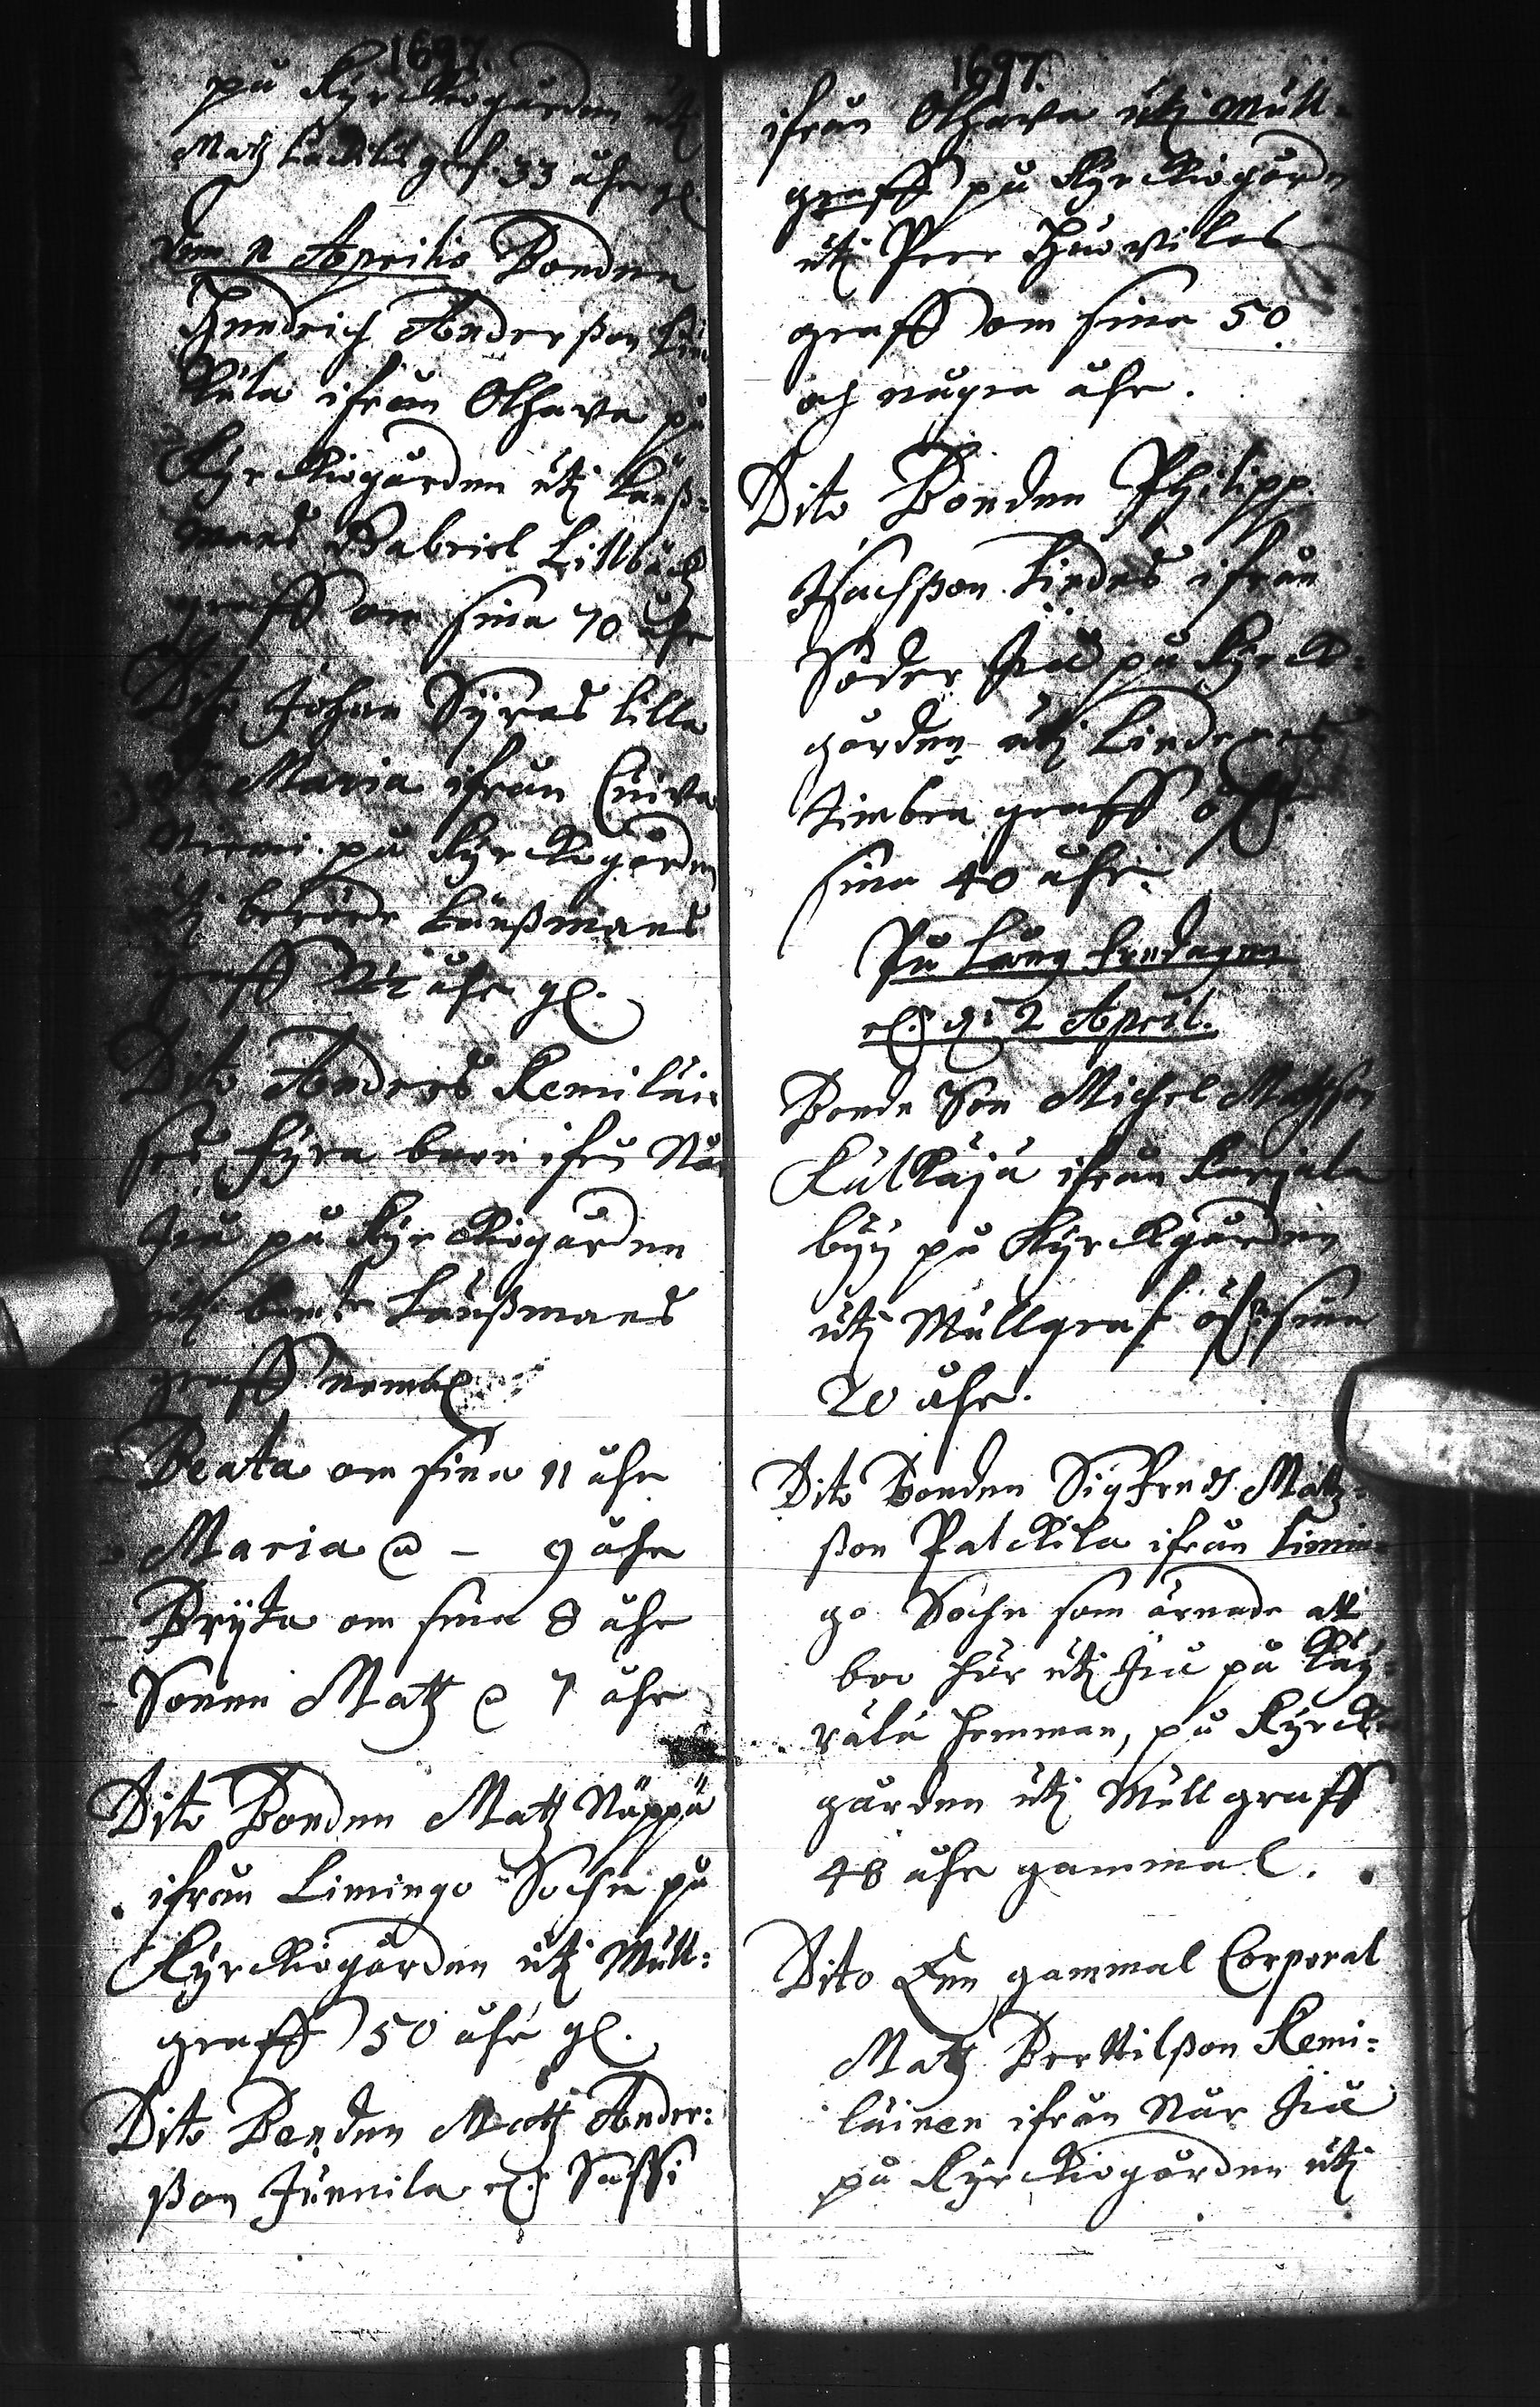 1697.
på Kyrckiogården uti
Matz graf. 33 åhr gl.
Dom 11 Aprilis Bonden
Hendrich Anderßon
ifrån Olhava på
Kyrckiogården uti Länß-
mans Gabriel Littbäcks
graff om sina 70 åhr
Dito Johan Syras lilla
Maria ifrån Cuiva
niemi på Kyrckiogården
uti berörde Länßmans
graff åhr gl.
Dito Anders Kemiläi-
ses fyra barn ifrå Når
Jiå på Kyrckiogården
uti bemte Länßmans
graff nembl
- Beata om sina 11 åhr
- Maria @ - 9 åhr
- Bryta om sina 8 åhr
- Sonen Matz @ 7 åhr
Dito Bonden Matz Näppä
ifrån Limingo Sochn på
Kyrckiogården uti Mull-
graff 50 åhr gl.
Dito Bonden Matz Ander-
ßon Junnila el. Sassi
1697.
ifrån Olhava uti Mull-
graff på Kyrckiogården
uti Peer Huoviles
graff om sina 50
och någre åhr.
Dito Bonden Philipp
Isachßon Lindes ifrån
Söder Jiå på Kyrck-
gården uti Linderes
timbra graff
sina 40 åhr.
På Lång fredagen
el. d: 2 April.
Bonde Son Michel Matzson
Kulkaja ifrån Karjala
byy på Kyrckgården
uti Mullgraf sina
20 åhr.
Dito Bonden Sigfredh Matz-
ßon Patckila ifrån Limin-
go Sochn som ärnade att
boo här uti Jiå på Käy-
rälä hemman, på Kyrck-
gården uti Mullgraff
48 åhr gammal.
Dito Een gammal Corporal
Matz Berttilßon Kemi-
läinen ifrån Når Jiå
på Kyrckiogården uti